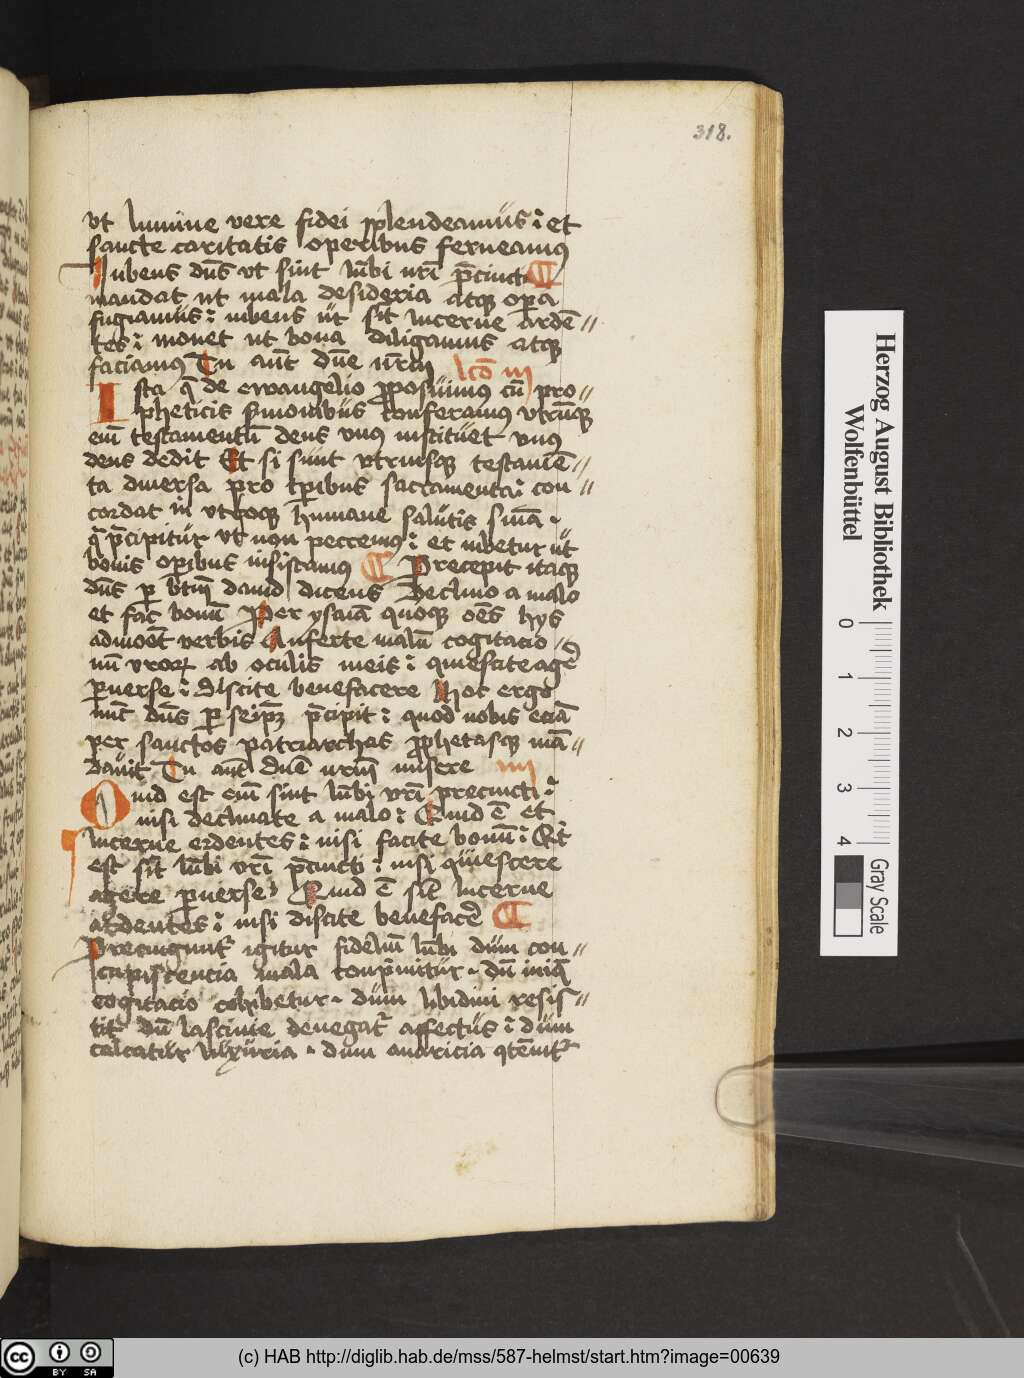 318.
vt lumine vere fidei splendeamus : et
sancte caritatis operibus ferueamus
Iubens dn̄s vt sint lūbi vr̄i p̄cincti ¶
mandat ut mala desideria atq opera
fugiamus : iubens ut sīt lucerne ardē//
tes : monet ut bona diligamus atq
faciamus Tu aūt dn̄e nr̄m
lcō iii
Ista q̄ de ewangelio proposuimus cū pro//
pheticis sermonibus conferamus vtrūq
eni testamentū deus vnus instituet vnus
deus dedit Et si sunt vtriusq testamē//
ta diuersa pro tp̄ribus sacramenta : con//
cordat in vtroq humane salutis suma .
q̄ p̄cipitur vt non peccemus : et iubetur ut
bonis operibus insistamus ¶ Precepit itaq
dn̄s p btm̄ dauid dicens Declino a malo
et fac bonū Per ysaiā quoq oēs hys
admoēt verbis Auferte malū cogitacio//
nū vrōꝝ ab oculis meis : quiescite agē
puerse : discite benefacere Hoc ergo
nūc dn̄s p seip̄m p̄cipit : quod nobis eciā
per sanctos patriarchas prophetasq mā//
dauit Tu aūt dn̄e nr̄m misere
iiii
Quid est eni sint lūbi vr̄i precincti :
nisi declinate a malo : Quid ē et
lucerne erdentes : nisi facite bonū : Qd
est sīt lūbi vr̄i p̄cincti : nisi quiescere
agere puerse Quid ē sīt lucerne
ardentes : nisi discite benefacē ¶
Precingunt igitur fideliū lūbi dum con//
cupiscencia mala conprimitur . dū iniq̄
cogitacio cohibetur . dum libidini resis//
tit dū lasciuie denegat affectus : dum
calcatur luxuria . dum auaricia qtēnit
Herzog August Bibliothek
Wolfenbüttel
0 1 2 3 4
Gray Scale
cc BY SA
(c) HAB http://diglib.hab.de/mss/587-helmst/start.htm?image=00639